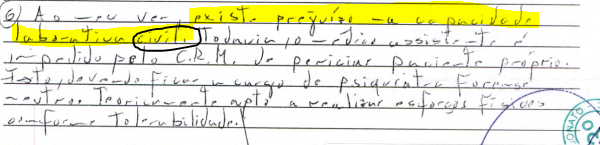 6) Ao meu ver existe prejuízo na capacidade
laborativa civil. Todavia, o médico assistente é
impedido pelo C.R.M. de periciar paciente próprio.
Isto, devendo ficar a cargo de psiquiatra forense
neutro. Teoricamente apto a realizar esforços físicos
conforme tolerabilidade.